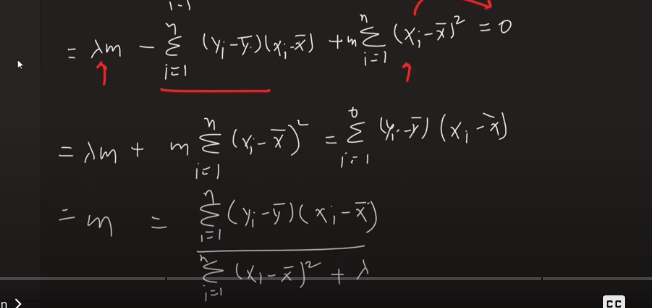 i=1
= λm − Σ_{i=1}^{n} (y_i − ȳ)(x_i − x̄) + m Σ_{i=1}^{n} (x_i − x̄)² = 0
= λm + m Σ_{i=1}^{n} (x_i − x̄)² = Σ_{i=1}^{n} (y_i − ȳ)(x_i − x̄)
= m = Σ_{i=1}^{n} (y_i − ȳ)(x_i − x̄)
Σ_{i=1}^{n} (x_i − x̄)² + λ
n >
CC